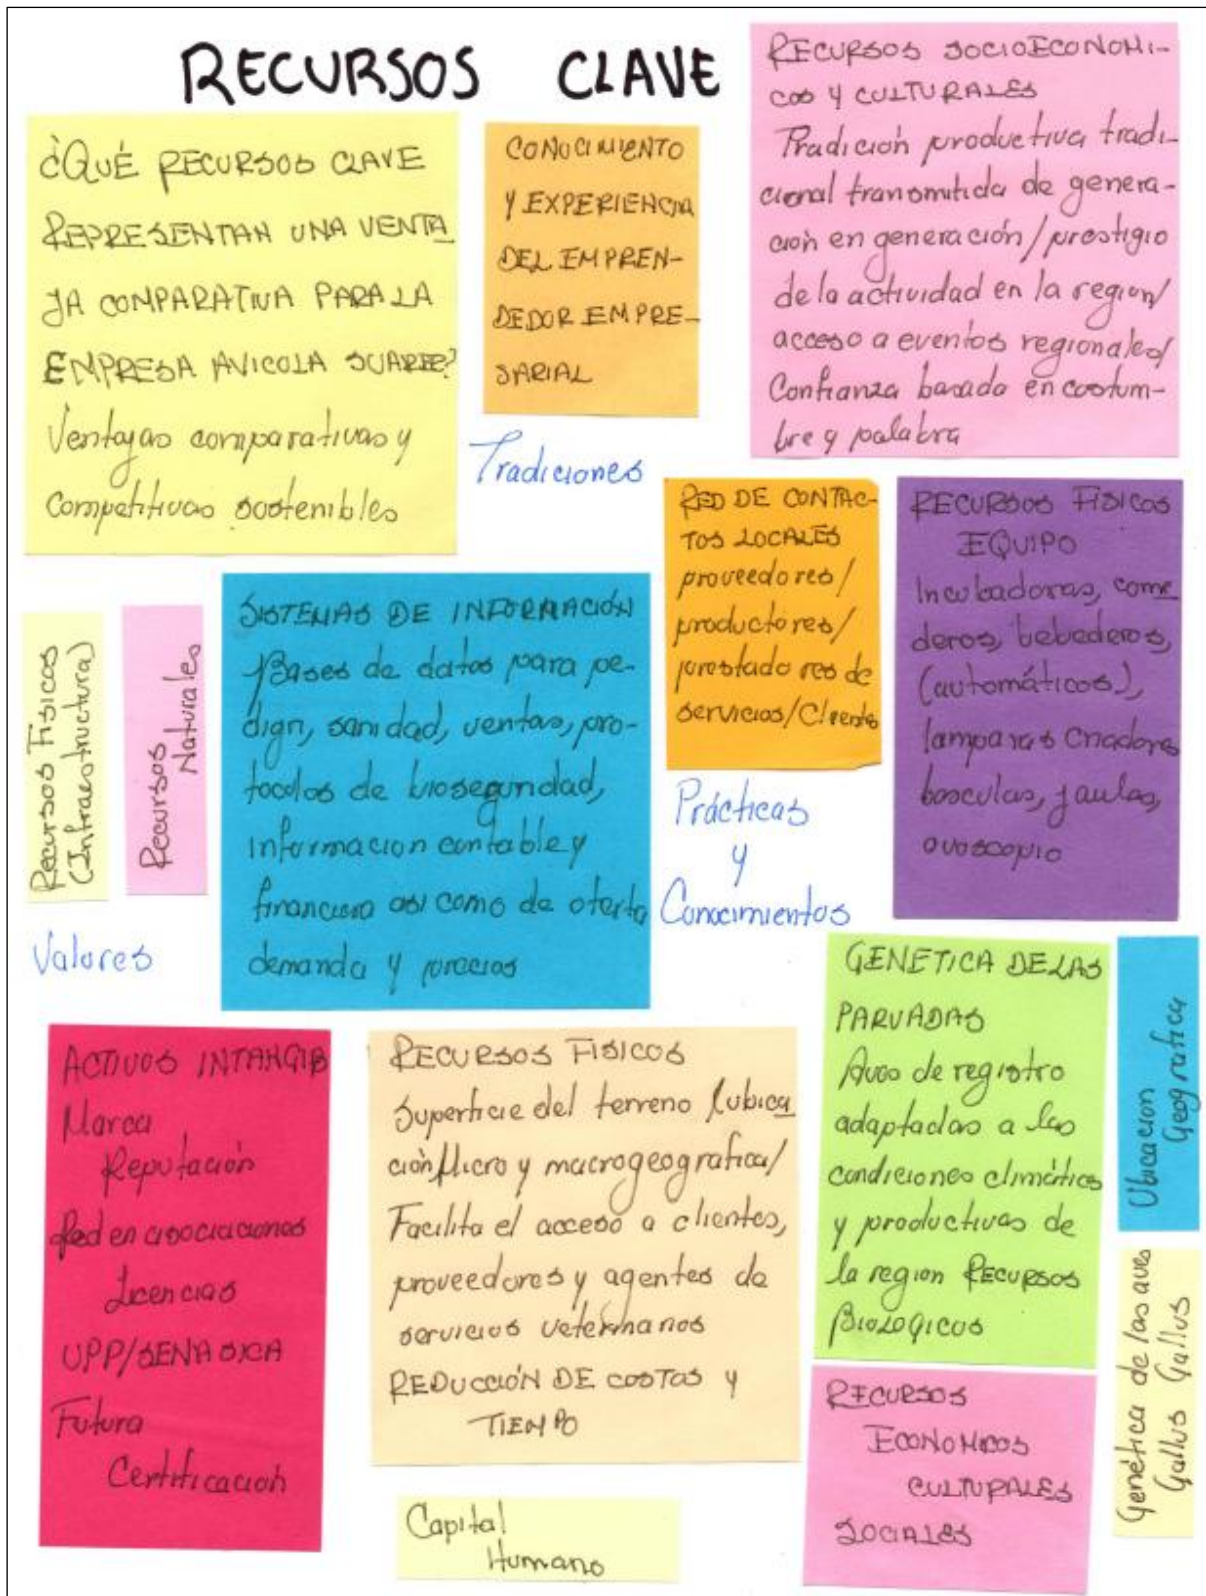 RECURSOS CLAVE
¿QUÉ RECURSOS CLAVE
REPRESENTAN UNA VENTA
JA COMPARATIVA PARA LA
EMPRESA AVICOLA SUAREZ?
Ventajas comparativas y
Competitivas sostenibles
CONOCIMIENTO
Y EXPERIENCIA
DEL EMPREN-
DEDOR EMPRE-
SARIAL
Tradiciones
RECURSOS SOCIOECONOMI-
COS Y CULTURALES
Tradición productiva tradi-
cional transmitida de genera-
ción en generación/prestigio
de la actividad en la region/
acceso a eventos regionales/
Confianza basada en costum-
bre y palabra
RED DE CONTAC-
TOS LOCALES
proveedores/
productores/
prestadores de
servicios/Clientes
Prácticas
y
Conocimientos
RECURSOS FISICOS
EQUIPO
Incubadoras, come
deros, bebederos,
(automáticos),
lamparas criadoras
basculas, jaulas,
ovoscopio
Recursos Fisicos
(Infraestructura)
Recursos
Naturales
Valores
SISTEMAS DE INFORMACIÓN
Bases de datos para pe-
digri, sanidad, ventas, pro-
tocolos de bioseguridad,
informacion contable y
financiera asi como de oferta
demanda y precios
ACTIVOS INTANGIB
Marca
Reputación
Red en asociaciones
Licencias
UPP/SENASICA
Futura
Certificación
RECURSOS FISICOS
Superficie del terreno/ubica
ción Micro y macrogeografica/
Facilita el acceso a clientes,
proveedores y agentes de
servicios veterinarios
REDUCCIÓN DE COSTOS y
TIEMPO
Capital
Humano
GENETICA DE LAS
PARVADAS
Aves de registro
adaptadas a las
condiciones climáticas
y productivas de
la region RECURSOS
BIOLOGICOS
Ubicacion
Geografica
RECURSOS
ECONOMICOS
CULTURALES
SOCIALES
Genética de las aves
Gallus Gallus